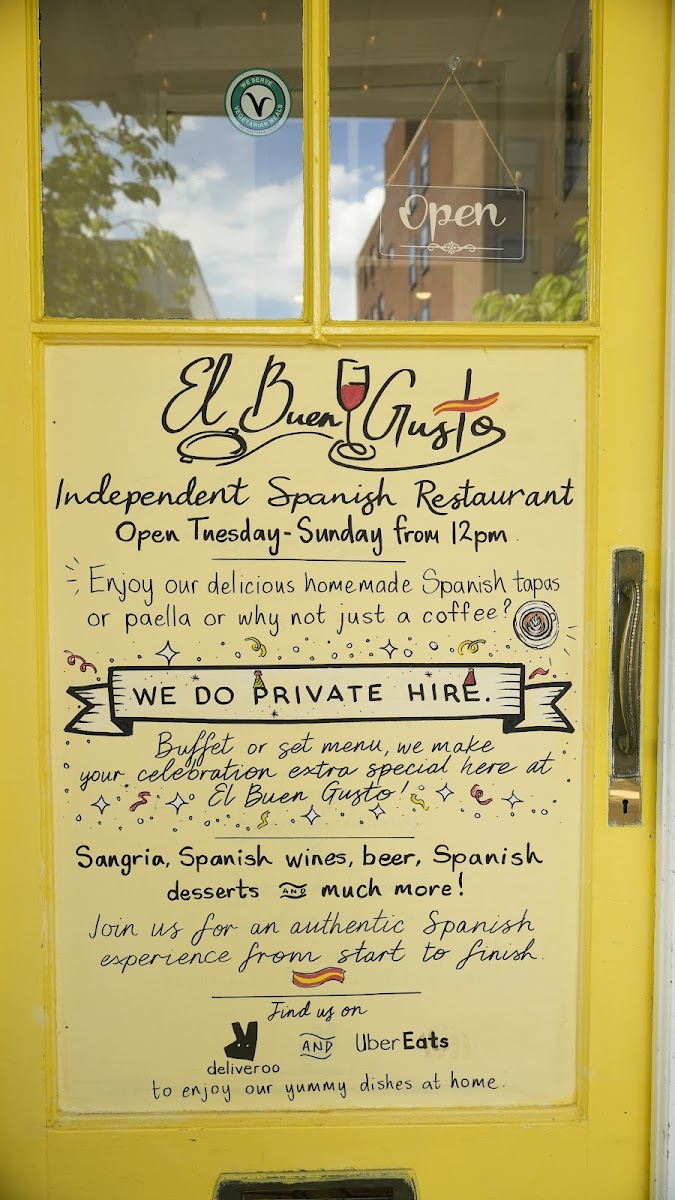 WE SERVE
V
VEGETARIAN MEALS
Open
El Buen Gusto
Independent Spanish Restaurant
Open Tuesday-Sunday from 12pm.
Enjoy our delicious homemade Spanish tapas
or paella or why not just a coffee?
WE DO PRIVATE HIRE.
Buffet or set menu, we make
your celebration extra special here at
El Buen Gusto!
Sangria, Spanish wines, beer, Spanish
desserts AND much more!
Join us for an authentic Spanish
experience from start to finish.
Find us on
deliveroo AND Uber Eats
to enjoy our yummy dishes at home.